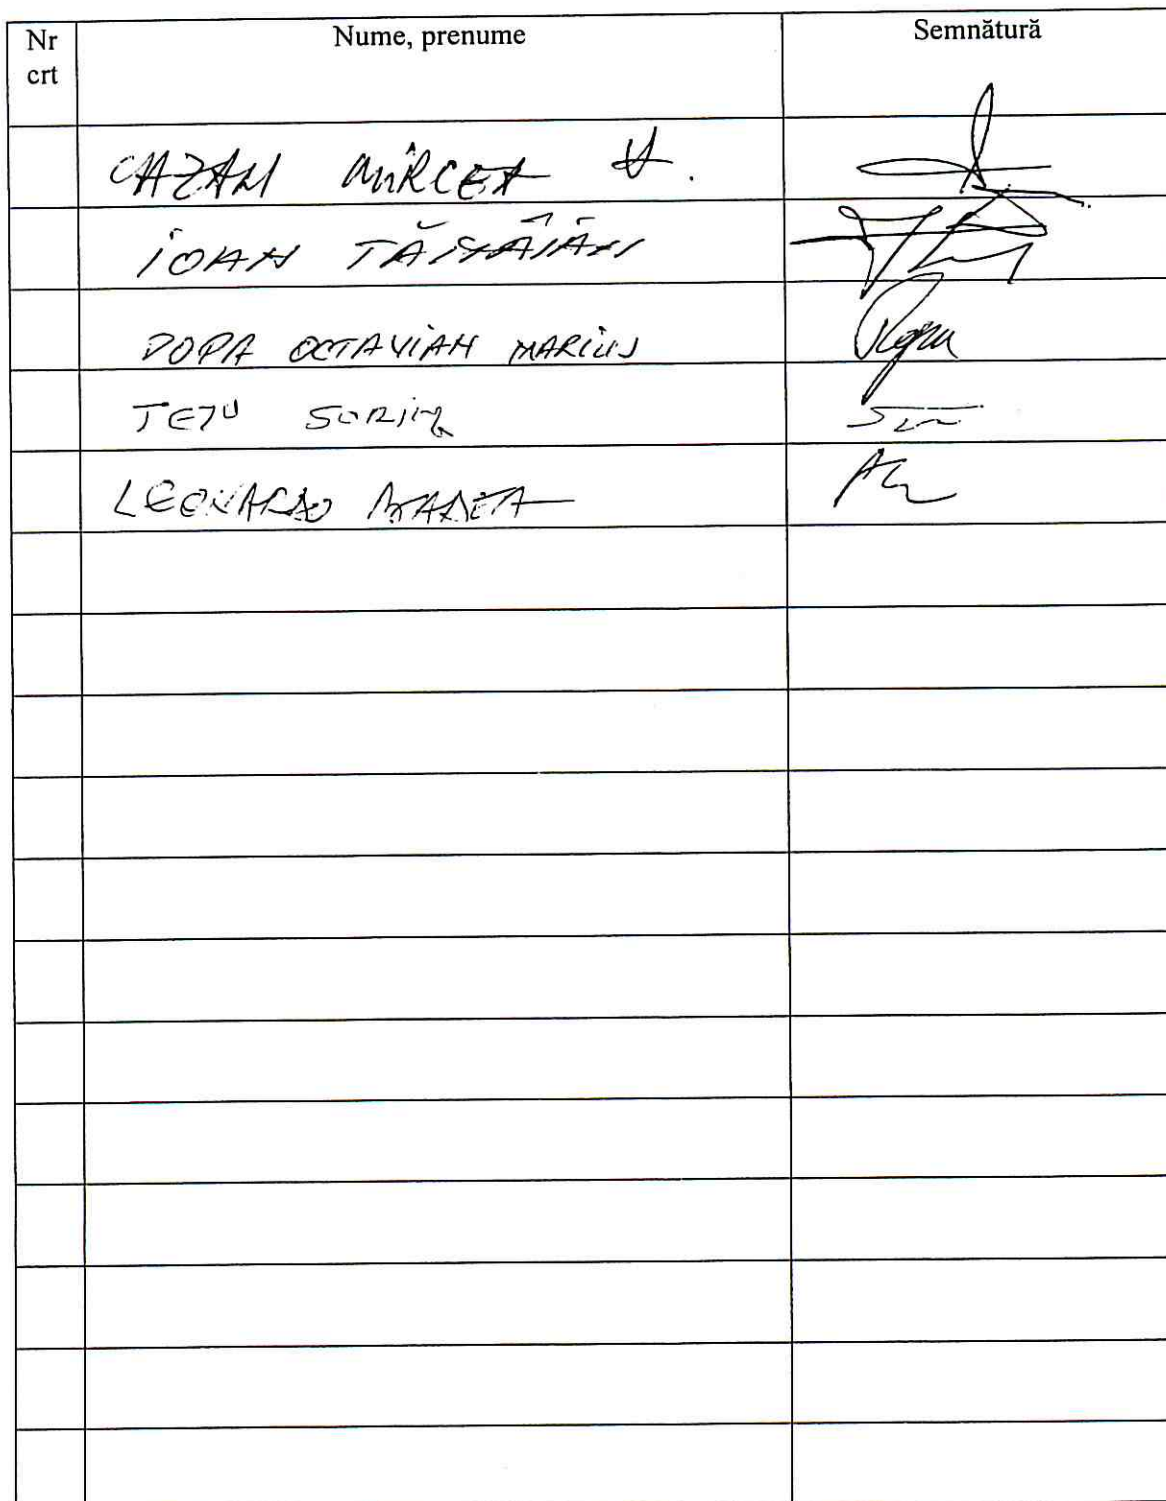 Nr crt Nume, prenume Semnătură
CAZAN MIRCEA V.
IOAN
POPA OCTAVIAN MARIUS
SORIN
LEONARDO BADEA